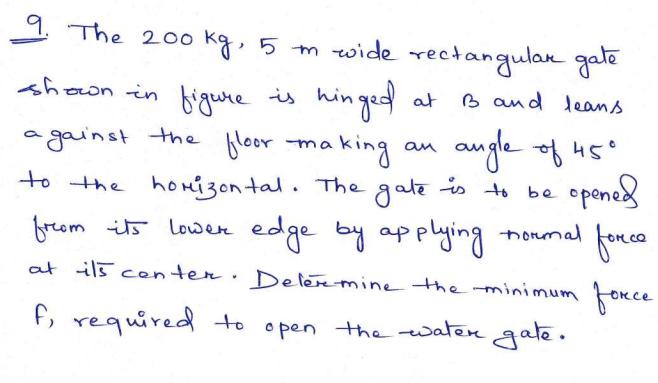 9. The 200 kg, 5 m wide rectangular gate
shown in figure is hinged at B and leans
against the floor making an angle of 45°
to the horizontal. The gate is to be opened
from its lower edge by applying normal force
at its center. Determine the minimum force
f, required to open the water gate.